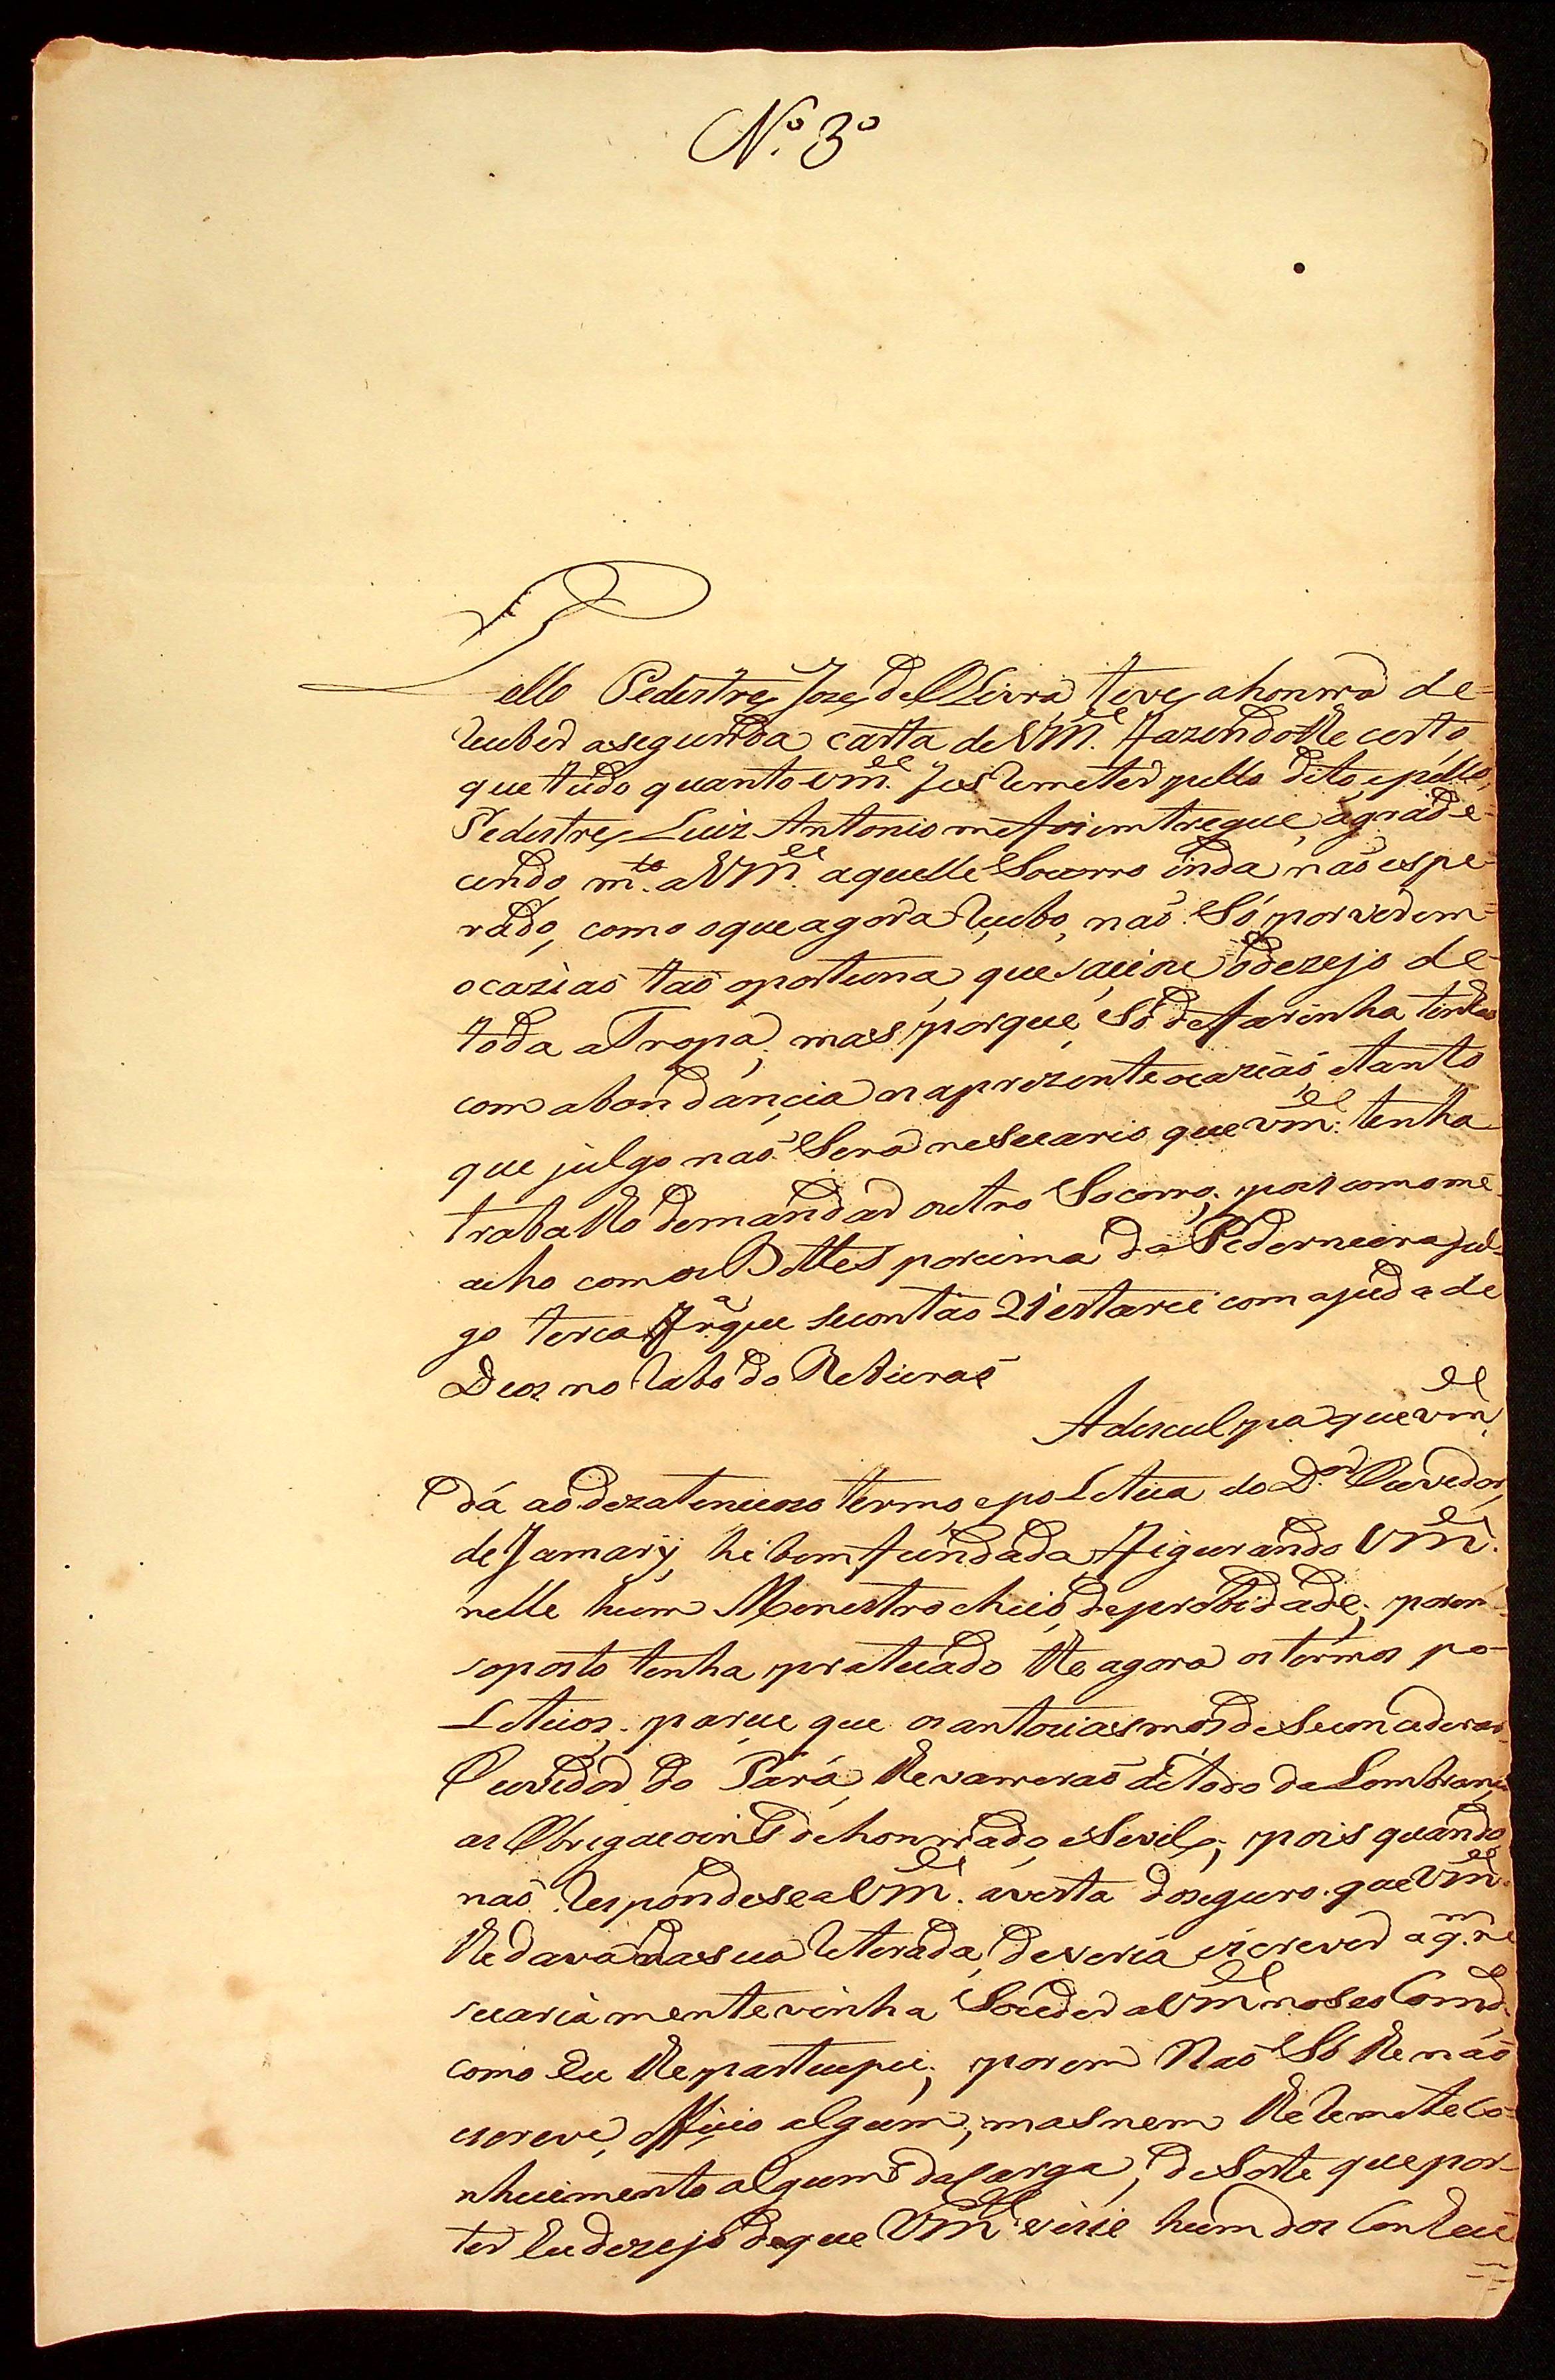 N.º 3º
Pello Pedestre Joze de Oliveira, tive a honrra de=
receber a segunda carta de Vm.ce fazendo lhe certo
que tudo quanto vm.ce fes remeter pello dito, e pello
Pedestre Luiz Antonio me foi emtregue, agrade-
cendo m.to a Vm.ce aquelle Socorro inda naõ espe-
rado, como o que agora recebo, naõ Só por vir em=
ocaziaõ taõ oportuna, que saciou o dezejo de
toda a Tropa; mas porque, Só de farinha tinha
com abondancia na prezente ocaziaõ, e tanto
que julgo naõ Será nesecario que vm.ce tenha
trabalho de mandar outro Socorro; pois como me
acho com os Bottes por cima da Pederneira, jul-
go terca fr.ª que se contaõ 21 estarei com ajuda de
Deos no rabo do Ribeiraõ
A desculpa que vm.ce
dá ao dezatencioso termo, e poLitica do D.or Ouvedor,
de Jamary, hé bem fundada, figurando Vm.ce
nelle hum Menistro cheio de probidade; porem
soposto tenha praticado the agora os termos po-
Liticos, parece que os antocias mos de Se conciderar
Ouvidor do Pará, lhe varreraõ de todo da Lembranca
as Obrigacoins de honrrado, e Sivil; pois quando
naõ respondese a Vm.ce a vista do seguro que Vm.ce
lhe dava da sua reterada, deveria escrever a q.m ne
secariamente vinha Soceder a Vm.ce no seo Comd.º
como eu lhe partecipei; porem Naõ Só lhe naõ
escreve officio algum, mas nem lhe remete Co=
nhecimento algum da Carga, de Sorte que por
ter eu dezejo de que Vm.ce vise hum dos Conheci